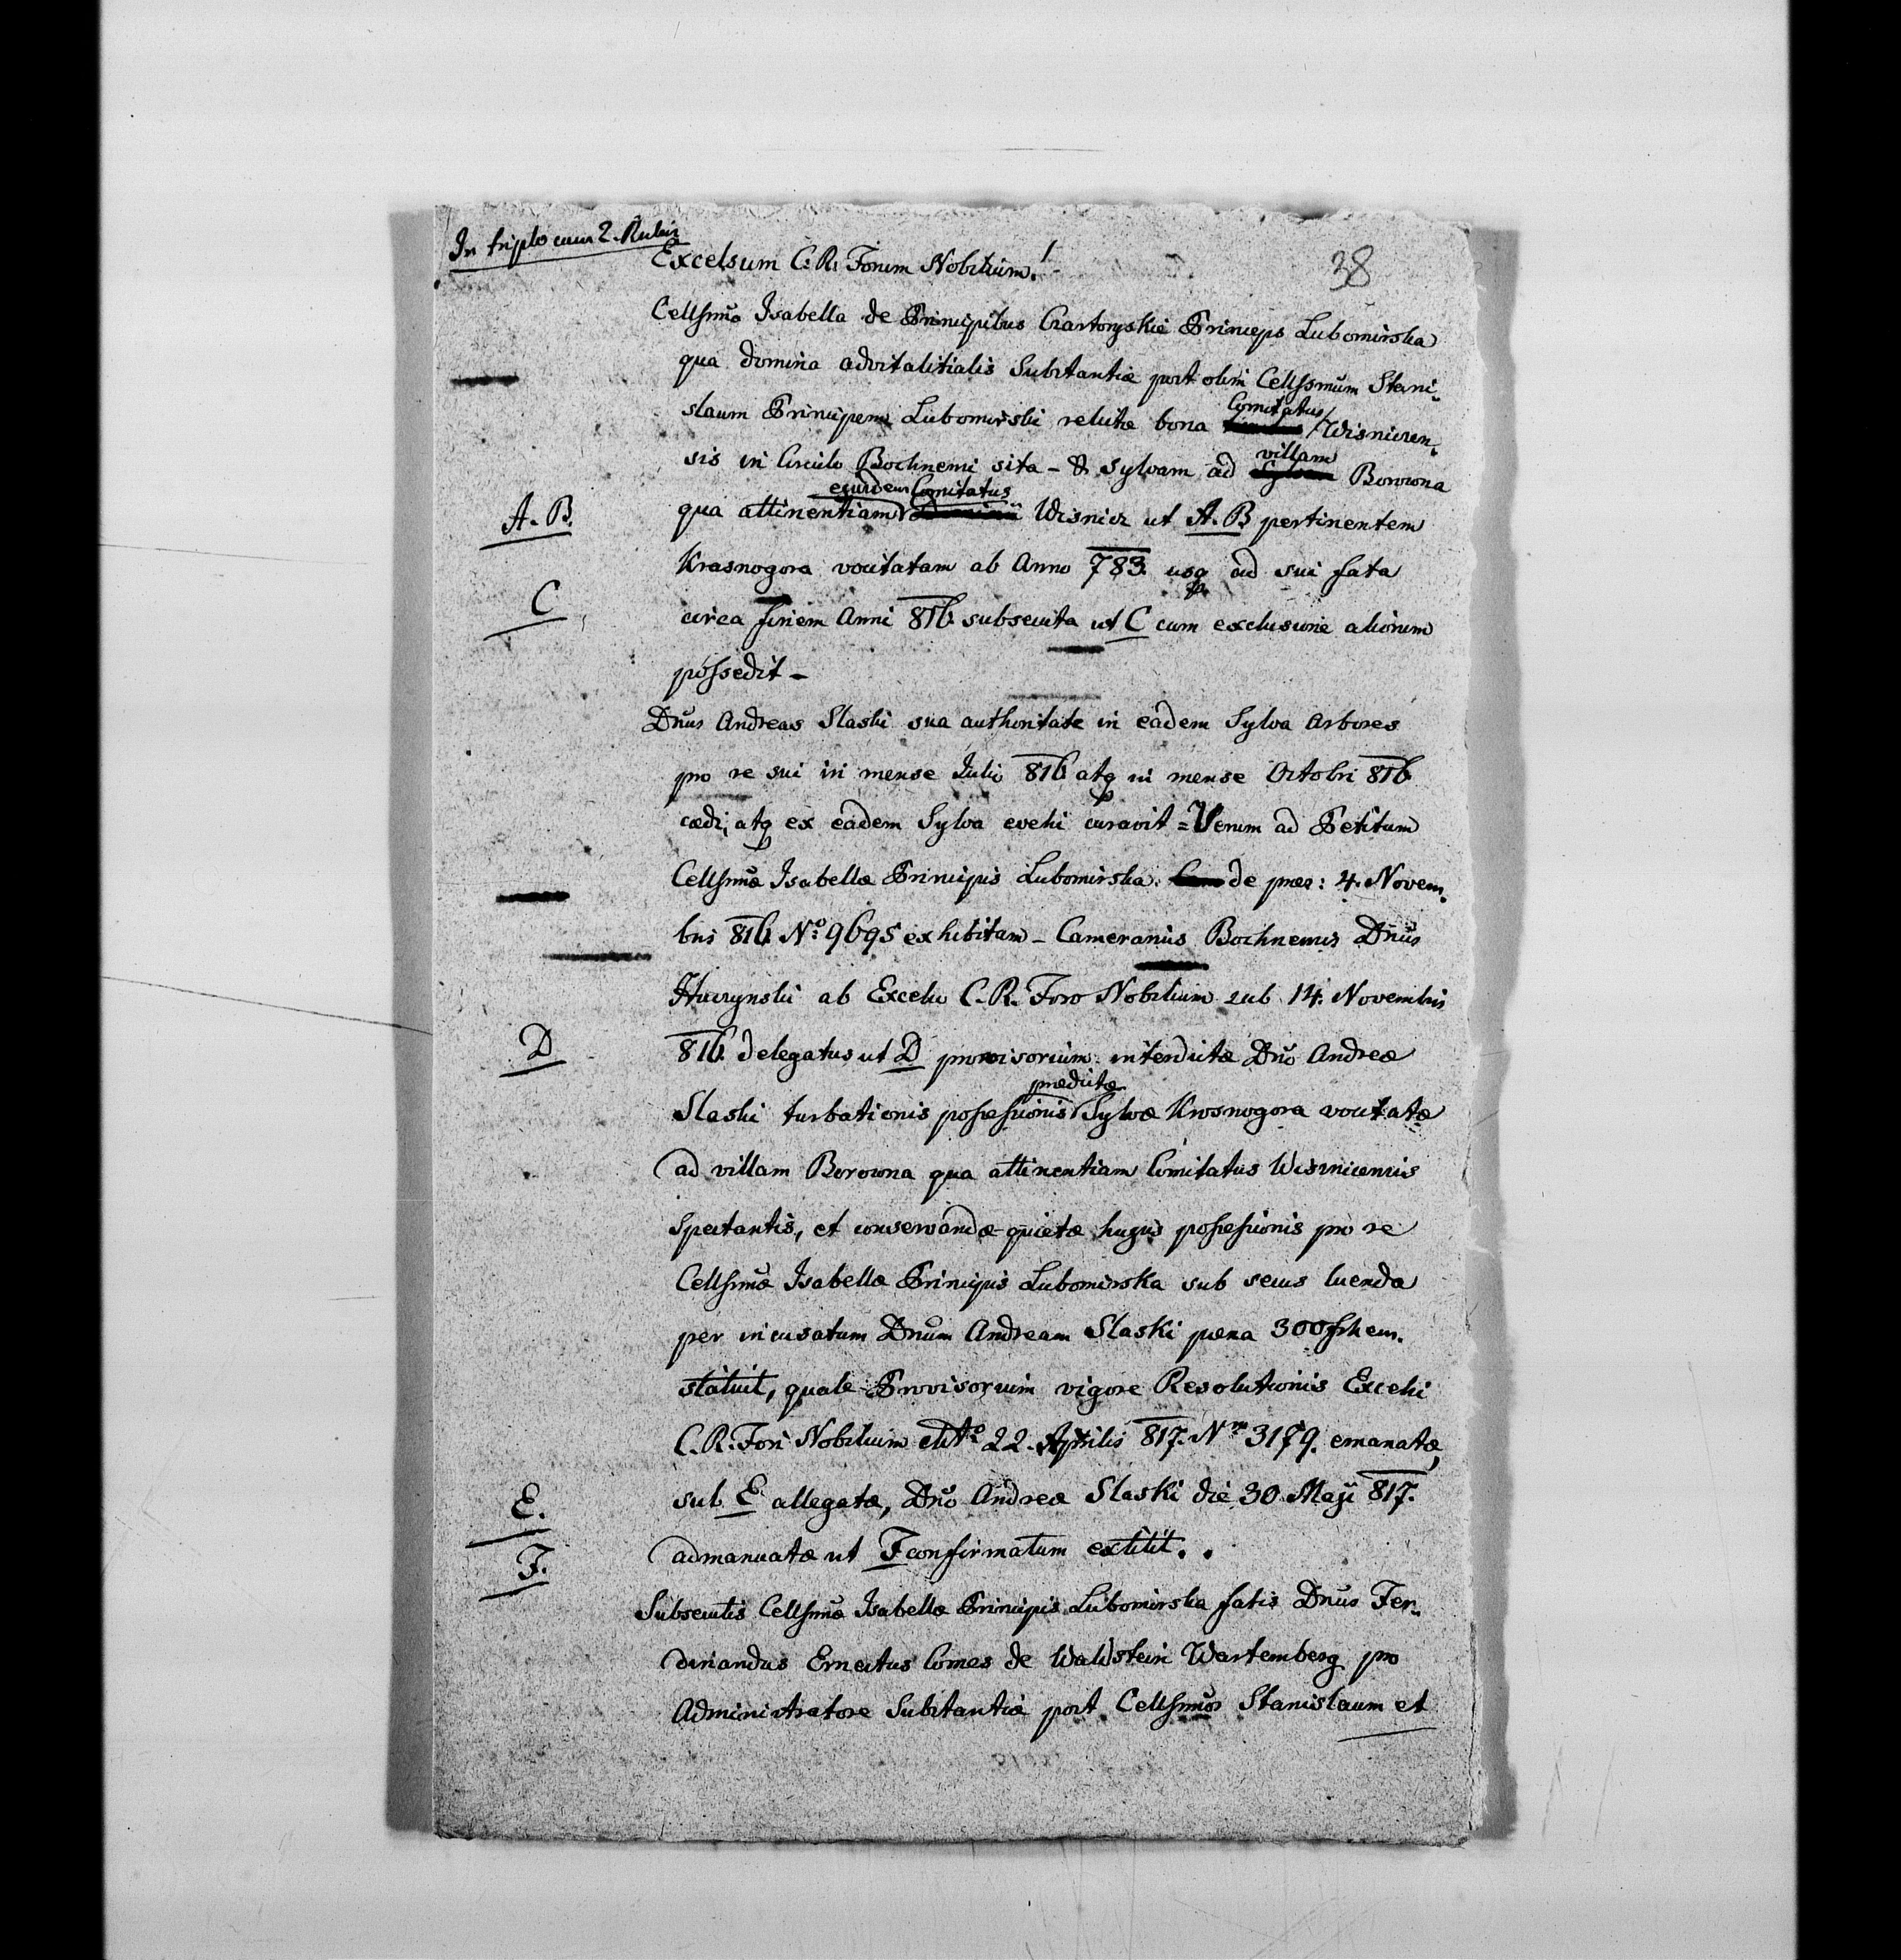 In triplo cum 2. Rubis
38
Excelsum C. R. Forum Nobilium!
Cellsma Isabella de Principibus Czartoryskie Princeps Lubomirska
qua domina advitalitialis Substantiæ post olim Cellssmum Stani-
slaum Principem Lubomirski relictæ bona Comitatus Wisnicen-
sis in Circulo Bochnensi sita - & sylvam ad villam Borowna
A. B. qua attinentiam ejusdem Comitatus Wisnicz ut A. B pertinentem
Krasnogora vocitatam ab Anno 783. usq ad sui fata
C circa finem Anni 816 subsecuta ut C cum exclusione aliorum
possedit -
Dnus Andreas Slaski sua authoritate in eadem Sylva Arbores
pro re sui in mense Julio 816 atq in mense Octobri 816
cædi, atq ex eadem Sylva evehi curavit = Verum ad Petitum
Cellsmæ Isabellæ Principis Lubomirska de præs: 4. Novem-
bris 816 No. 9695 exhibitam - Camerarius Bochnensis Dnus
ab Excelso C. R. Foro Nobilium sub 14. Novembris
D 816. delegatus ut D provisorium interdictæ Dno Andreæ
Slaski turbationis possessionis prædictæ Sylvæ Krosnogora vocitatæ
ad villam Borowna qua attinentiam Comitatus Wisnicensis
spectantis, et conservandæ quietæ hujus possessionis pro re
Cellsmæ Isabellæ Principis Lubomirska sub secus luenda
per incusatum Dnum Andream Slaski pæna 300 frhem.
statuit, quale Provisorium vigore Resolutionis Excelsi
C. R. Fori Nobilium ddto 22. Aprilis 817. Nro 3179. emanatæ,
E. sub E allegatæ, Dno Andreæ Slaski die 30 Maji 817.
F. admanuatæ ut F confirmatum extitit.
Subsecutis Cellsmæ Isabellæ Principis Lubomirska fatis Dnus Fer-
dinandus Ernestus Comes de Waldstein Wartemberg pro
Administratore Substantiæ post Cellsmos Stanislaum et